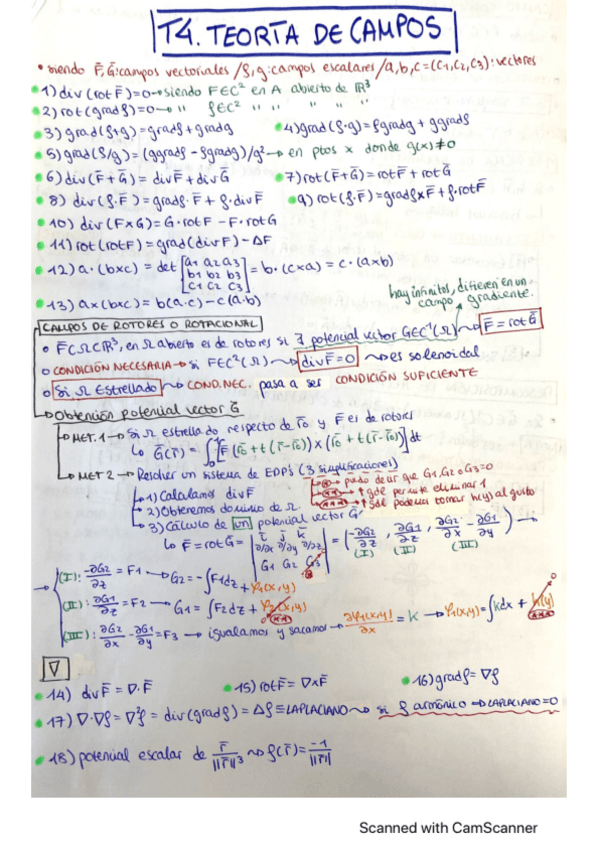 T4. TEORÍA DE CAMPOS
• siendo F̄, Ḡ: campos vectoriales / f, g: campos escalares / a, b, c = (C1, C2, C3): vectores
1) div (rot F̄) = 0 → siendo F∈C² en A abierto de ℝ³
2) rot (grad f) = 0 → " f∈C² " " " " "
3) grad (f+g) = grad f + grad g
4) grad (f·g) = f grad g + g grad f
5) grad (f/g) = (g grad f - f grad g)/g² → en ptos x donde g(x) ≠ 0
6) div (F̄+Ḡ) = div F̄ + div Ḡ
7) rot (F̄+Ḡ) = rot F̄ + rot Ḡ
8) div (f·F̄) = grad f · F̄ + f · div F̄
9) rot (f·F̄) = grad f x F̄ + f · rot F̄
10) div (F x G) = G · rot F - F · rot G
11) rot (rot F) = grad (div F) - ΔF
12) a · (b x c) = det [a1 a2 a3
b1 b2 b3
c1 c2 c3] = b · (c x a) = c · (a x b)
13) a x (b x c) = b (a·c) - c (a·b)
hay infinitos, difieren en un
campo gradiente.
CAMPOS DE ROTORES O ROTACIONAL
• F̄ ⊂ Ω ⊂ ℝ³, en Ω abierto es de rotores si ∃ potencial vector G∈C¹(Ω) F̄ = rot Ḡ
• CONDICIÓN NECESARIA → si F∈C²(Ω) div F̄ = 0 → es solenoidal
• Si Ω Estrellado COND. NEC. pasa a ser CONDICIÓN SUFICIENTE
Obtención potencial vector Ḡ
MET. 1 → Si Ω estrellado respecto de r̄0 y F̄ es de rotores
Ḡ(r̄) = ∫₀¹ [F (r̄0 + t (r̄-r̄0)) x (r̄0 + t (r̄-r̄0))] dt
MET 2 → Resolver un sistema de EDP's (3 simplificaciones)
puedo decir que G1, G2 o G3 = 0
1) Calculamos div F
↑ gde permite eliminar 1
2) Obtenemos dominio de Ω
podemos tomar h(y) al gusto
3) Cálculo de un potencial vector Ḡ
F̄ = rot Ḡ = | ī j̄ k̄
∂/∂x ∂/∂y ∂/∂z
G1 G2 G3 | = (-∂G2/∂z, ∂G1/∂z, ∂G2/∂x - ∂G1/∂y) →
(I) (II) (III)
(I): -∂G2/∂z = F1 → G2 = -∫F1dz + φ1(x,y)
(II): ∂G1/∂z = F2 → G1 = ∫F2dz + φ2(x,y)
(III): ∂G2/∂x - ∂G1/∂y = F3 → igualamos y sacamos → ∂φ1(x,y)/∂x = k → φ1(x,y) = ∫kdx + h(y)
∇
14) div F̄ = ∇·F̄
15) rot F̄ = ∇xF̄
16) grad f = ∇f
17) ∇·∇f = ∇²f = div (grad f) = Δf ≡ LAPLACIANO si f armónico ⇒ LAPLACIANO = 0
18) potencial escalar de r̄/||r̄||³ f(r̄) = -1/||r̄||
Scanned with CamScanner